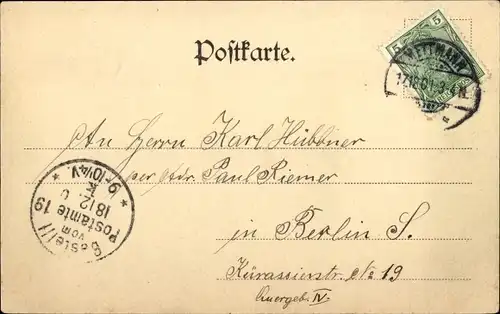 Postkarte.
5
5
METTMANN
An Herrn Karl Hübdner
per Adr. Paul Riemer
in Berlin S.
Kürassierstr. No 19
Quergeb. IV.
Bestellt
vom
Postamte 19
18 12. 0
9-10¼V